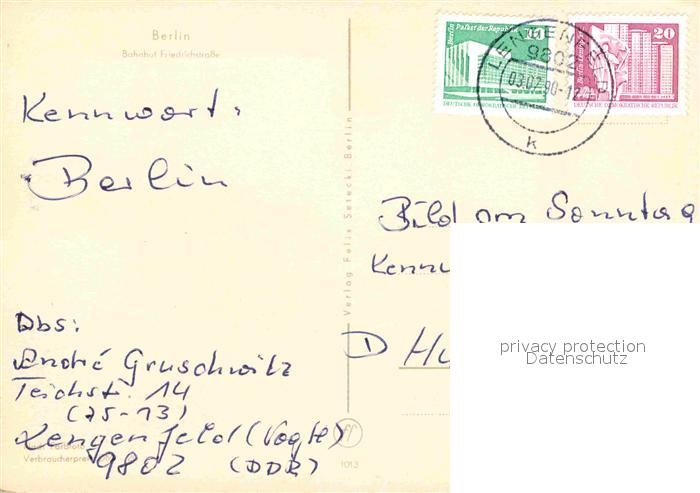 Berlin
Bahnhof Friedrichstraße
Berlin Palast der Republik 10
DEUTSCHE DEMOKRATISCHE
20
Berlin
DEUTSCHE DEMOKRATISCHE REPUBLIK
LENGENFELD
9802
03.07.90-12
k
Kennwort:
Berlin
Verlag Felix Setecki Berlin
Bild am Sonntag
Kennw
D Hu
privacy protection
Datenschutz
Abs:
André Gruschwitz
Teichstr. 14
(75-13)
Lengenfeld (Vogtl)
9802 (DDR)
Verbraucherpreis
1013